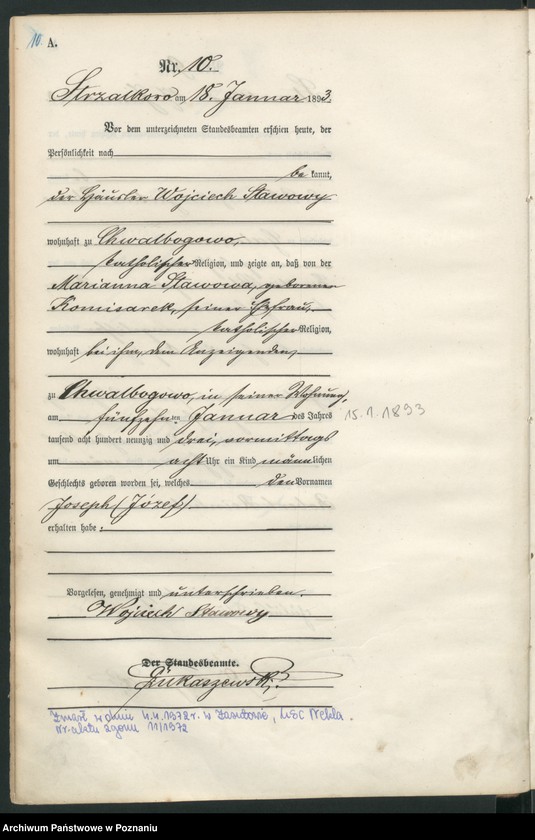 10 A.
Nr. 10.
Strzalkowo am 18. Januar 1893.
Vor dem unterzeichneten Standesbeamten erschien heute, der
Persönlichkeit nach
be kannt,
der Häusler Wojciech Stawowy
wohnhaft zu Chwalbogowo,
katholischer Religion, und zeigte an, daß von der
Marianna Stawowa, geborenen
Komisarek, seiner Ehefrau,
katholischer Religion,
wohnhaft bei ihm, dem Anzeigenden,
zu Chwalbogowo, in seiner Wohnung,
am fünfzehnten Januar des Jahres 15.1.1893
tausend acht hundert neunzig und drei, vormittags
um acht Uhr ein Kind männlichen
Geschlechts geboren worden sei, welches den Vornamen
Joseph (Józef)
erhalten habe.
Vorgelesen, genehmigt und unterschrieben.
Wojciech Stawowy
Der Standesbeamte.
Łukaszewski
Zmarł w dniu 4.4.1972 r. w Zasutowie, USC Nekla.
Nr. aktu zgonu 11/1972
Archiwum Państwowe w Poznaniu